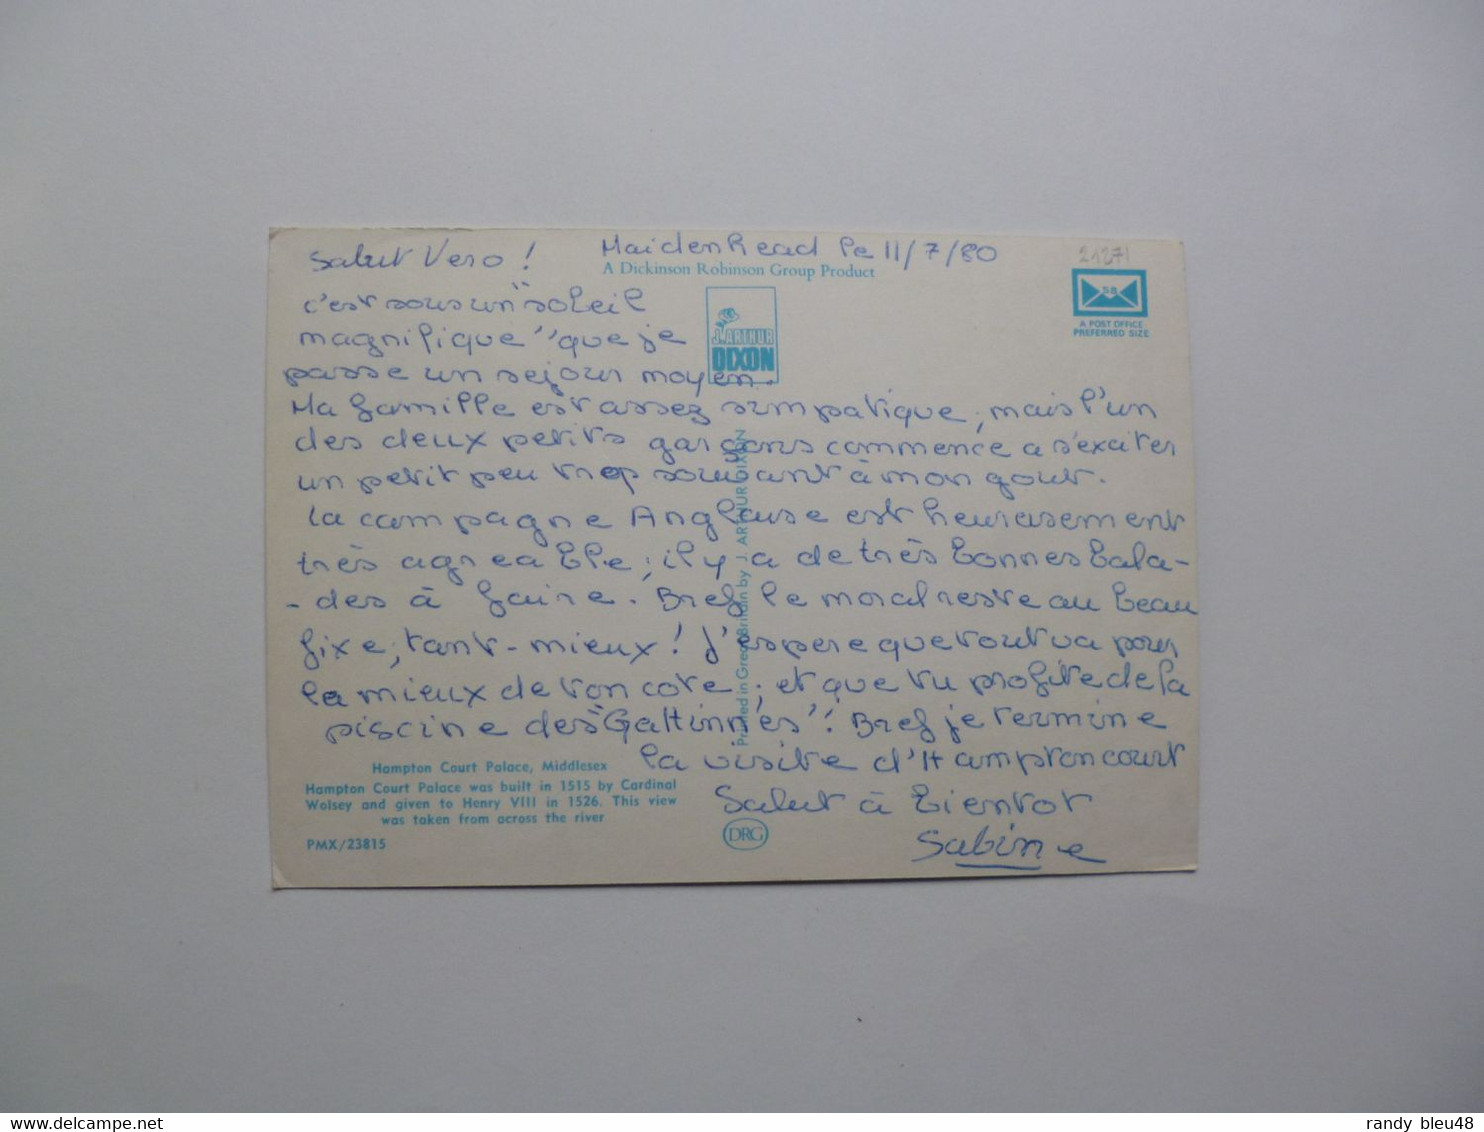 Salut Vero !
Maidenhead le 11/7/80
21871
A Dickinson Robinson Group Product
c'est sous un "soleil
magnifique" que je
passe un sejour moyen.
J. ARTHUR
DIXON
SB
A POST OFFICE
PREFERRED SIZE
Ma famille est assez sympatique, mais l'un
des deux petits garçons commence a s'exciter
un petit peu trop souvant à mon gout.
La campagne Anglaise est heureusement
très agreable, il y a de très bonnes bala-
-des à faire. Bref le moral reste au beau
fixe, tant-mieux ! J'espere que tout va pour
la mieux de ton cote, et que tu profite de la
piscine des "Gattinnes". Bref je termine
la visite d'Hampton court
Salut à bientot
Sabine
Printed in Great Britain by J. ARTHUR DIXON
Hampton Court Palace, Middlesex
Hampton Court Palace was built in 1515 by Cardinal
Wolsey and given to Henry VIII in 1526. This view
was taken from across the river
PMX/23815
DRG
delcampe.net
randy_bleu48